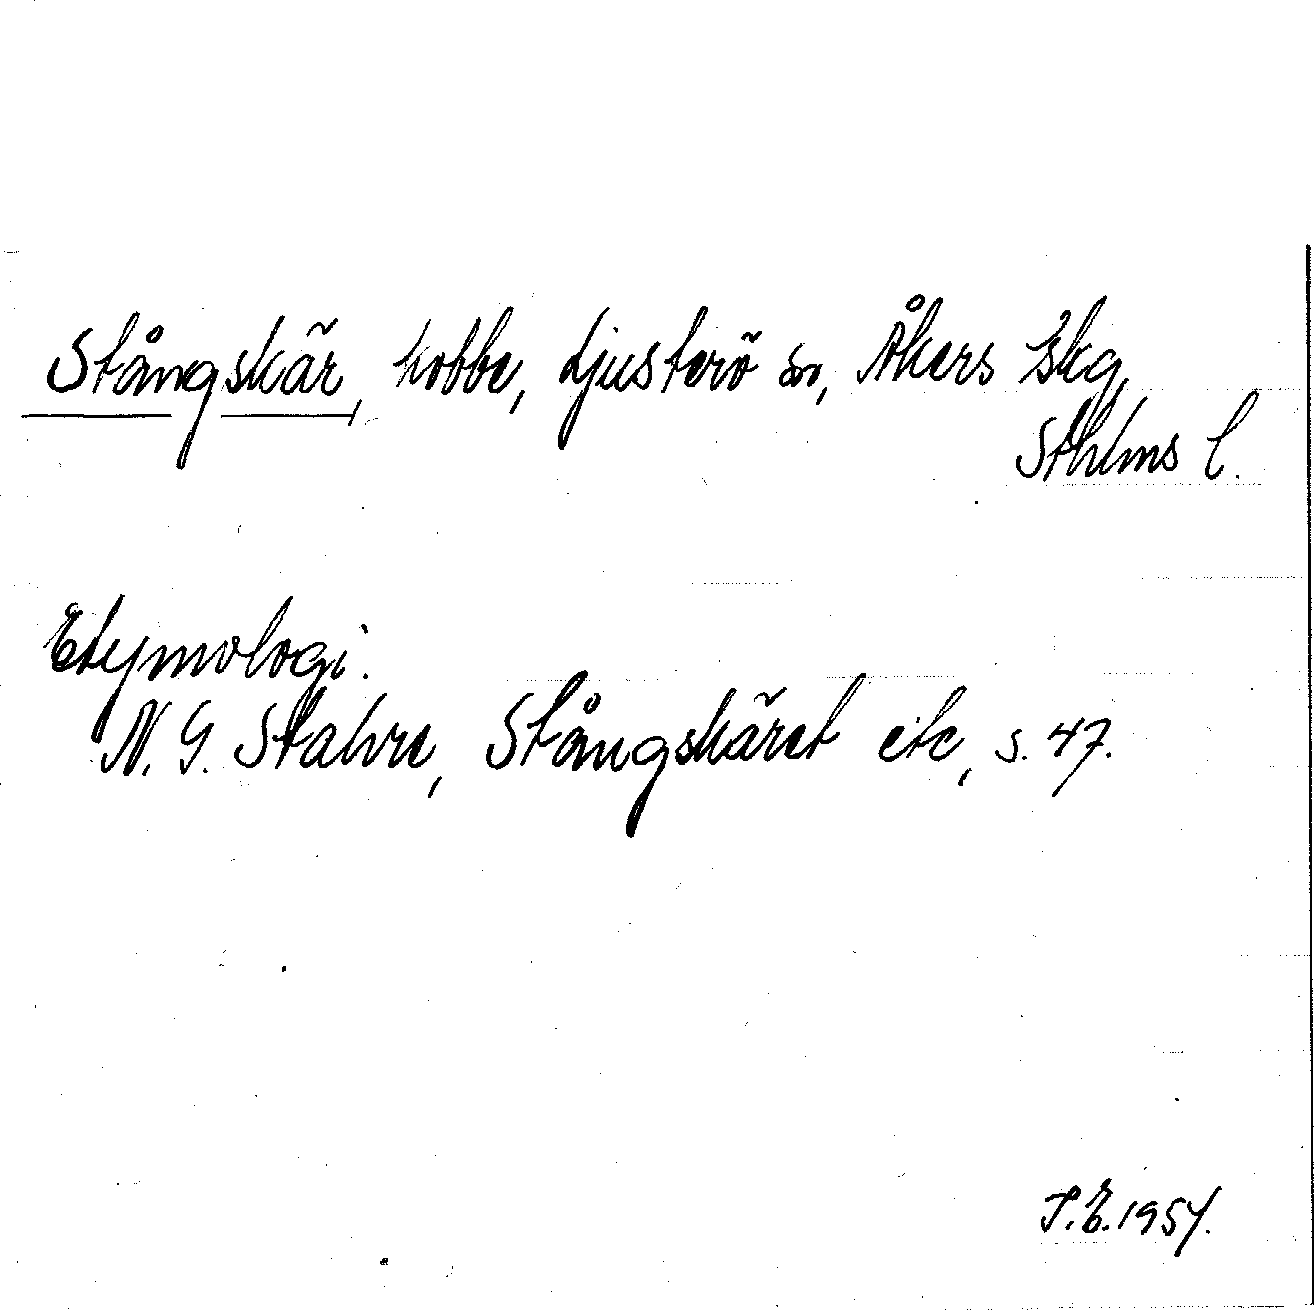 Stångskär, kobbe, Ljusterö sn, Åkers skg,
Sthlms l.
Etymologi.
N. G. Stahre, Stångskäret etc, s. 47.
S.E. 1954.